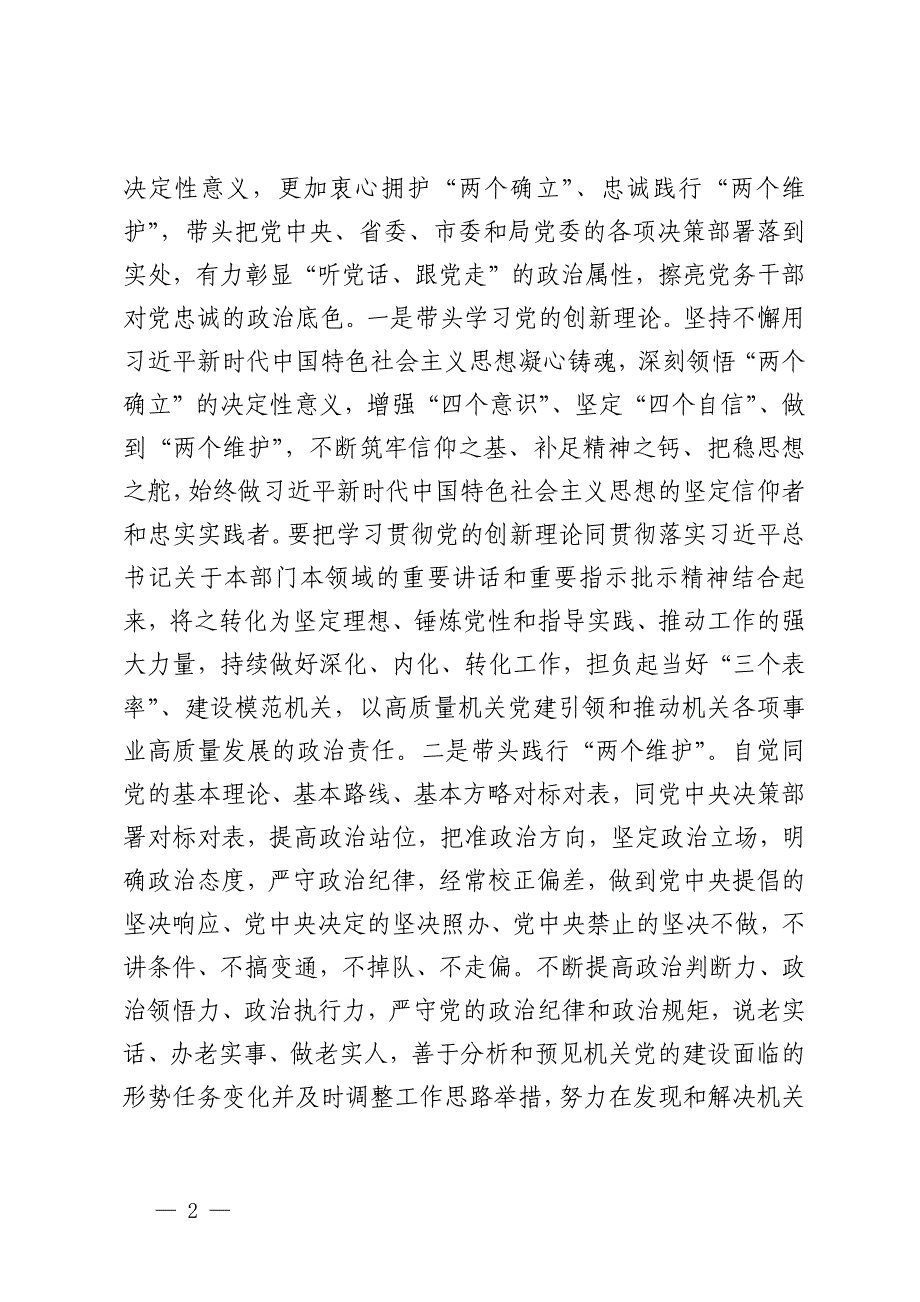 决定性意义，更加衷心拥护“两个确立”、忠诚践行“两个维
护”，带头把党中央、省委、市委和局党委的各项决策部署落到
实处，有力彰显“听党话、跟党走”的政治属性，擦亮党务干部
对党忠诚的政治底色。一是带头学习党的创新理论。坚持不懈用
习近平新时代中国特色社会主义思想凝心铸魂，深刻领悟“两个
确立”的决定性意义，增强“四个意识”、坚定“四个自信”、做
到“两个维护”，不断筑牢信仰之基、补足精神之钙、把稳思想
之舵，始终做习近平新时代中国特色社会主义思想的坚定信仰者
和忠实实践者。要把学习贯彻党的创新理论同贯彻落实习近平总
书记关于本部门本领域的重要讲话和重要指示批示精神结合起
来，将之转化为坚定理想、锤炼党性和指导实践、推动工作的强
大力量，持续做好深化、内化、转化工作，担负起当好“三个表
率”、建设模范机关，以高质量机关党建引领和推动机关各项事
业高质量发展的政治责任。二是带头践行“两个维护”。自觉同
党的基本理论、基本路线、基本方略对标对表，同党中央决策部
署对标对表，提高政治站位，把准政治方向，坚定政治立场，明
确政治态度，严守政治纪律，经常校正偏差，做到党中央提倡的
坚决响应、党中央决定的坚决照办、党中央禁止的坚决不做，不
讲条件、不搞变通，不掉队、不走偏。不断提高政治判断力、政
治领悟力、政治执行力，严守党的政治纪律和政治规矩，说老实
话、办老实事、做老实人，善于分析和预见机关党的建设面临的
形势任务变化并及时调整工作思路举措，努力在发现和解决机关
— 2 —